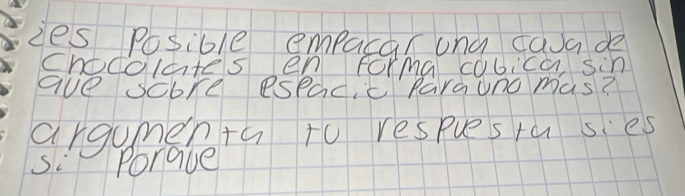 ¿es posible empacar una caja de
chocolates en forma cubica, sin
que sobre espacio para uno mas?
argumenta tu respuesta si es
si porque